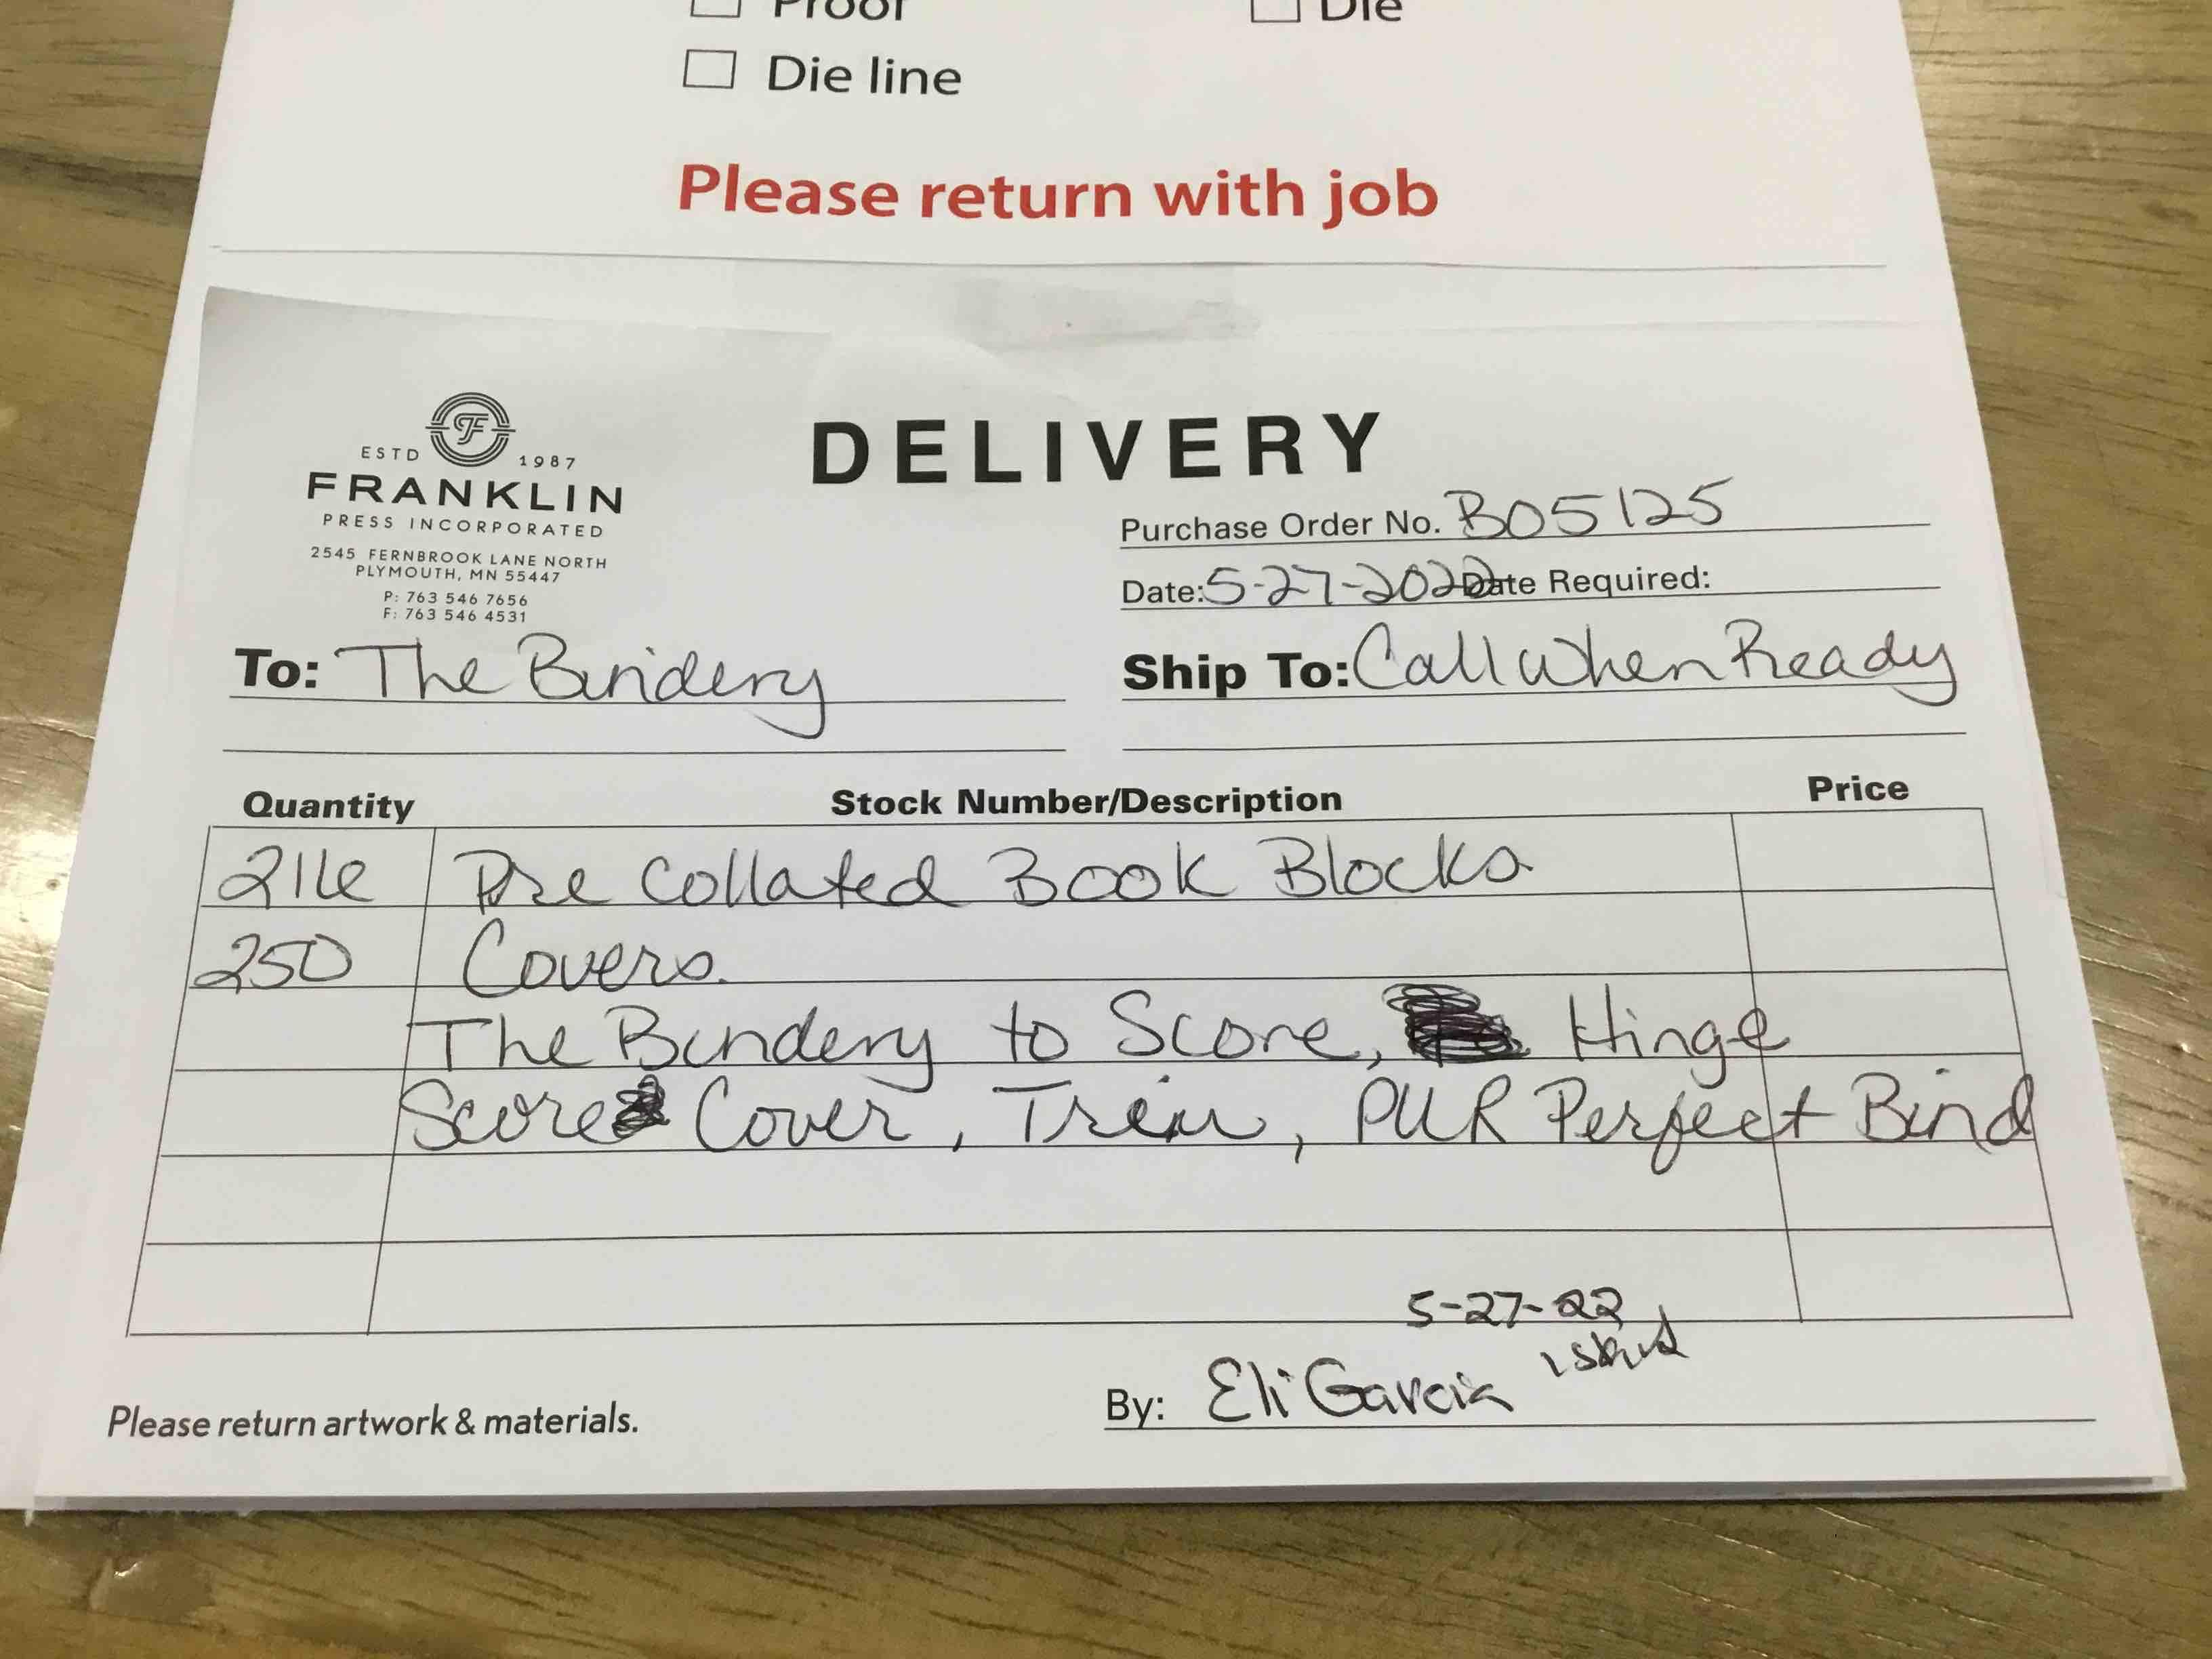 Proof
Die
Die line
Please return with job
ESTD 1987
FRANKLIN
PRESS INCORPORATED
2545 FERNBROOK LANE NORTH
PLYMOUTH, MN 55447
P: 763 546 7656
F: 763 546 4531
DELIVERY
Purchase Order No. B05125
Date: 5-27-2022 Date Required:
To: The Bindery
Ship To: Call When Ready
Quantity Stock Number/Description Price
216 Pre Collated Book Blocks.
250 Covers.
The Bindery to Score, Hinge
Score Cover, Trim, PUR Perfect Bind
5-27-22
1 skid
By: Eli Garcia
Please return artwork & materials.